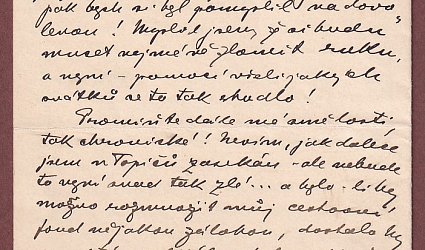 pak bych si byl pomyslil na dovo
lenou! Myslil jsem, že si budu
muset nejméně zlomit ruku,
a nyní - pomocí všelijakých
svátků se to tak shodlo!
Promiňte dále mé smělosti
tak chronické! Nevím, jak dalece
jsem u Topičů zasekán - ale nebude
to nyní snad tak zlé... a bylo-li by
možno rozmnožit můj cestovní
fond nějakou zálohou, dostalo by